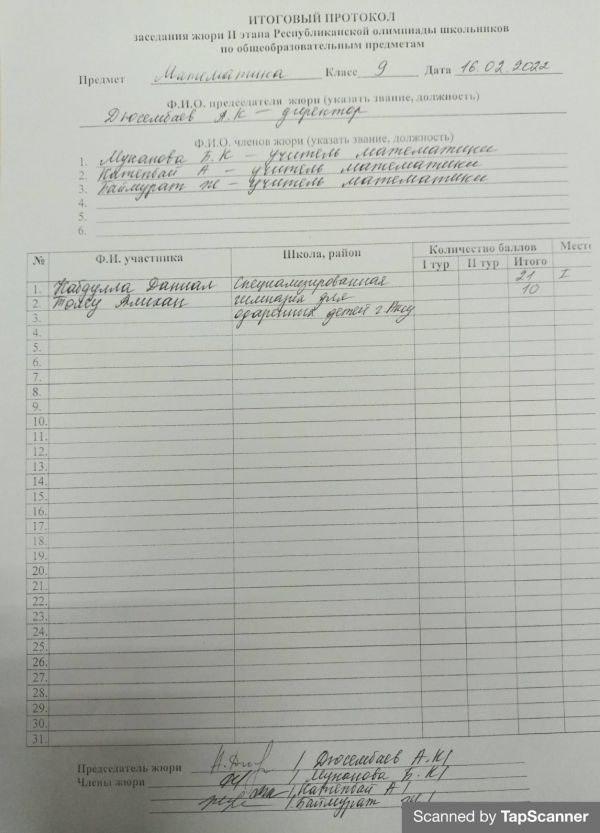 ИТОГОВЫЙ ПРОТОКОЛ
заседания жюри II этапа Республиканской олимпиады школьников
по общеобразовательным предметам
Предмет Математика Класс 9 Дата 16.02.2022
Ф.И.О. председателя жюри (указать звание, должность)
Дюсембаев А.К – директор
Ф.И.О. членов жюри (указать звание, должность)
1. Муканова Б.К – учитель математики
2. Катепбай А – учитель математики
3. Баймурат – учитель математики
4.
5.
6.
№ Ф.И. участника Школа, район Количество баллов Место
I тур II тур Итого
1. Кабдулла Даниал Специализированная 21 I
2. Алихан гимназия для 10
3. одаренных детей г.
4.
5.
6.
7.
8.
9.
10.
11.
12.
13.
14.
15.
16.
17.
18.
19.
20.
21.
22.
23.
24.
25.
26.
27.
28.
29.
30.
31.
Председатель жюри / Дюсембаев А.К/
Члены жюри / Муканова Б.К/
/ Катепбай А/
/ Баймурат
Scanned by TapScanner